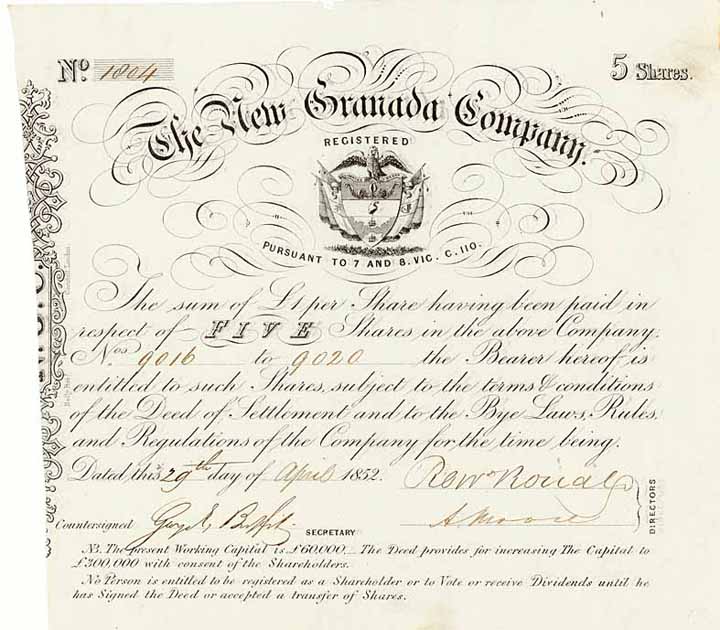 No. 1804
5 Shares.
The New Granada Company.
REGISTERED
PURSUANT TO 7 AND 8. VIC. C. 110.
The sum of £1 per Share having been paid in
respect of FIVE Shares in the above Company.
Nos 9016 to 9020 the Bearer hereof is
entitled to such Shares, subject to the terms & conditions
of the Deed of Settlement and to the Bye Laws, Rules,
and Regulations of the Company for the time being.
Dated this 29th day of April 1852.
Countersigned
SECRETARY
A Moore
DIRECTORS
NB. The present Working Capital is £60,000. The Deed provides for increasing The Capital to
£300,000 with consent of the Shareholders.
No Person is entitled to be registered as a Shareholder or to Vote or receive Dividends until he
has Signed the Deed or accepted a transfer of Shares.